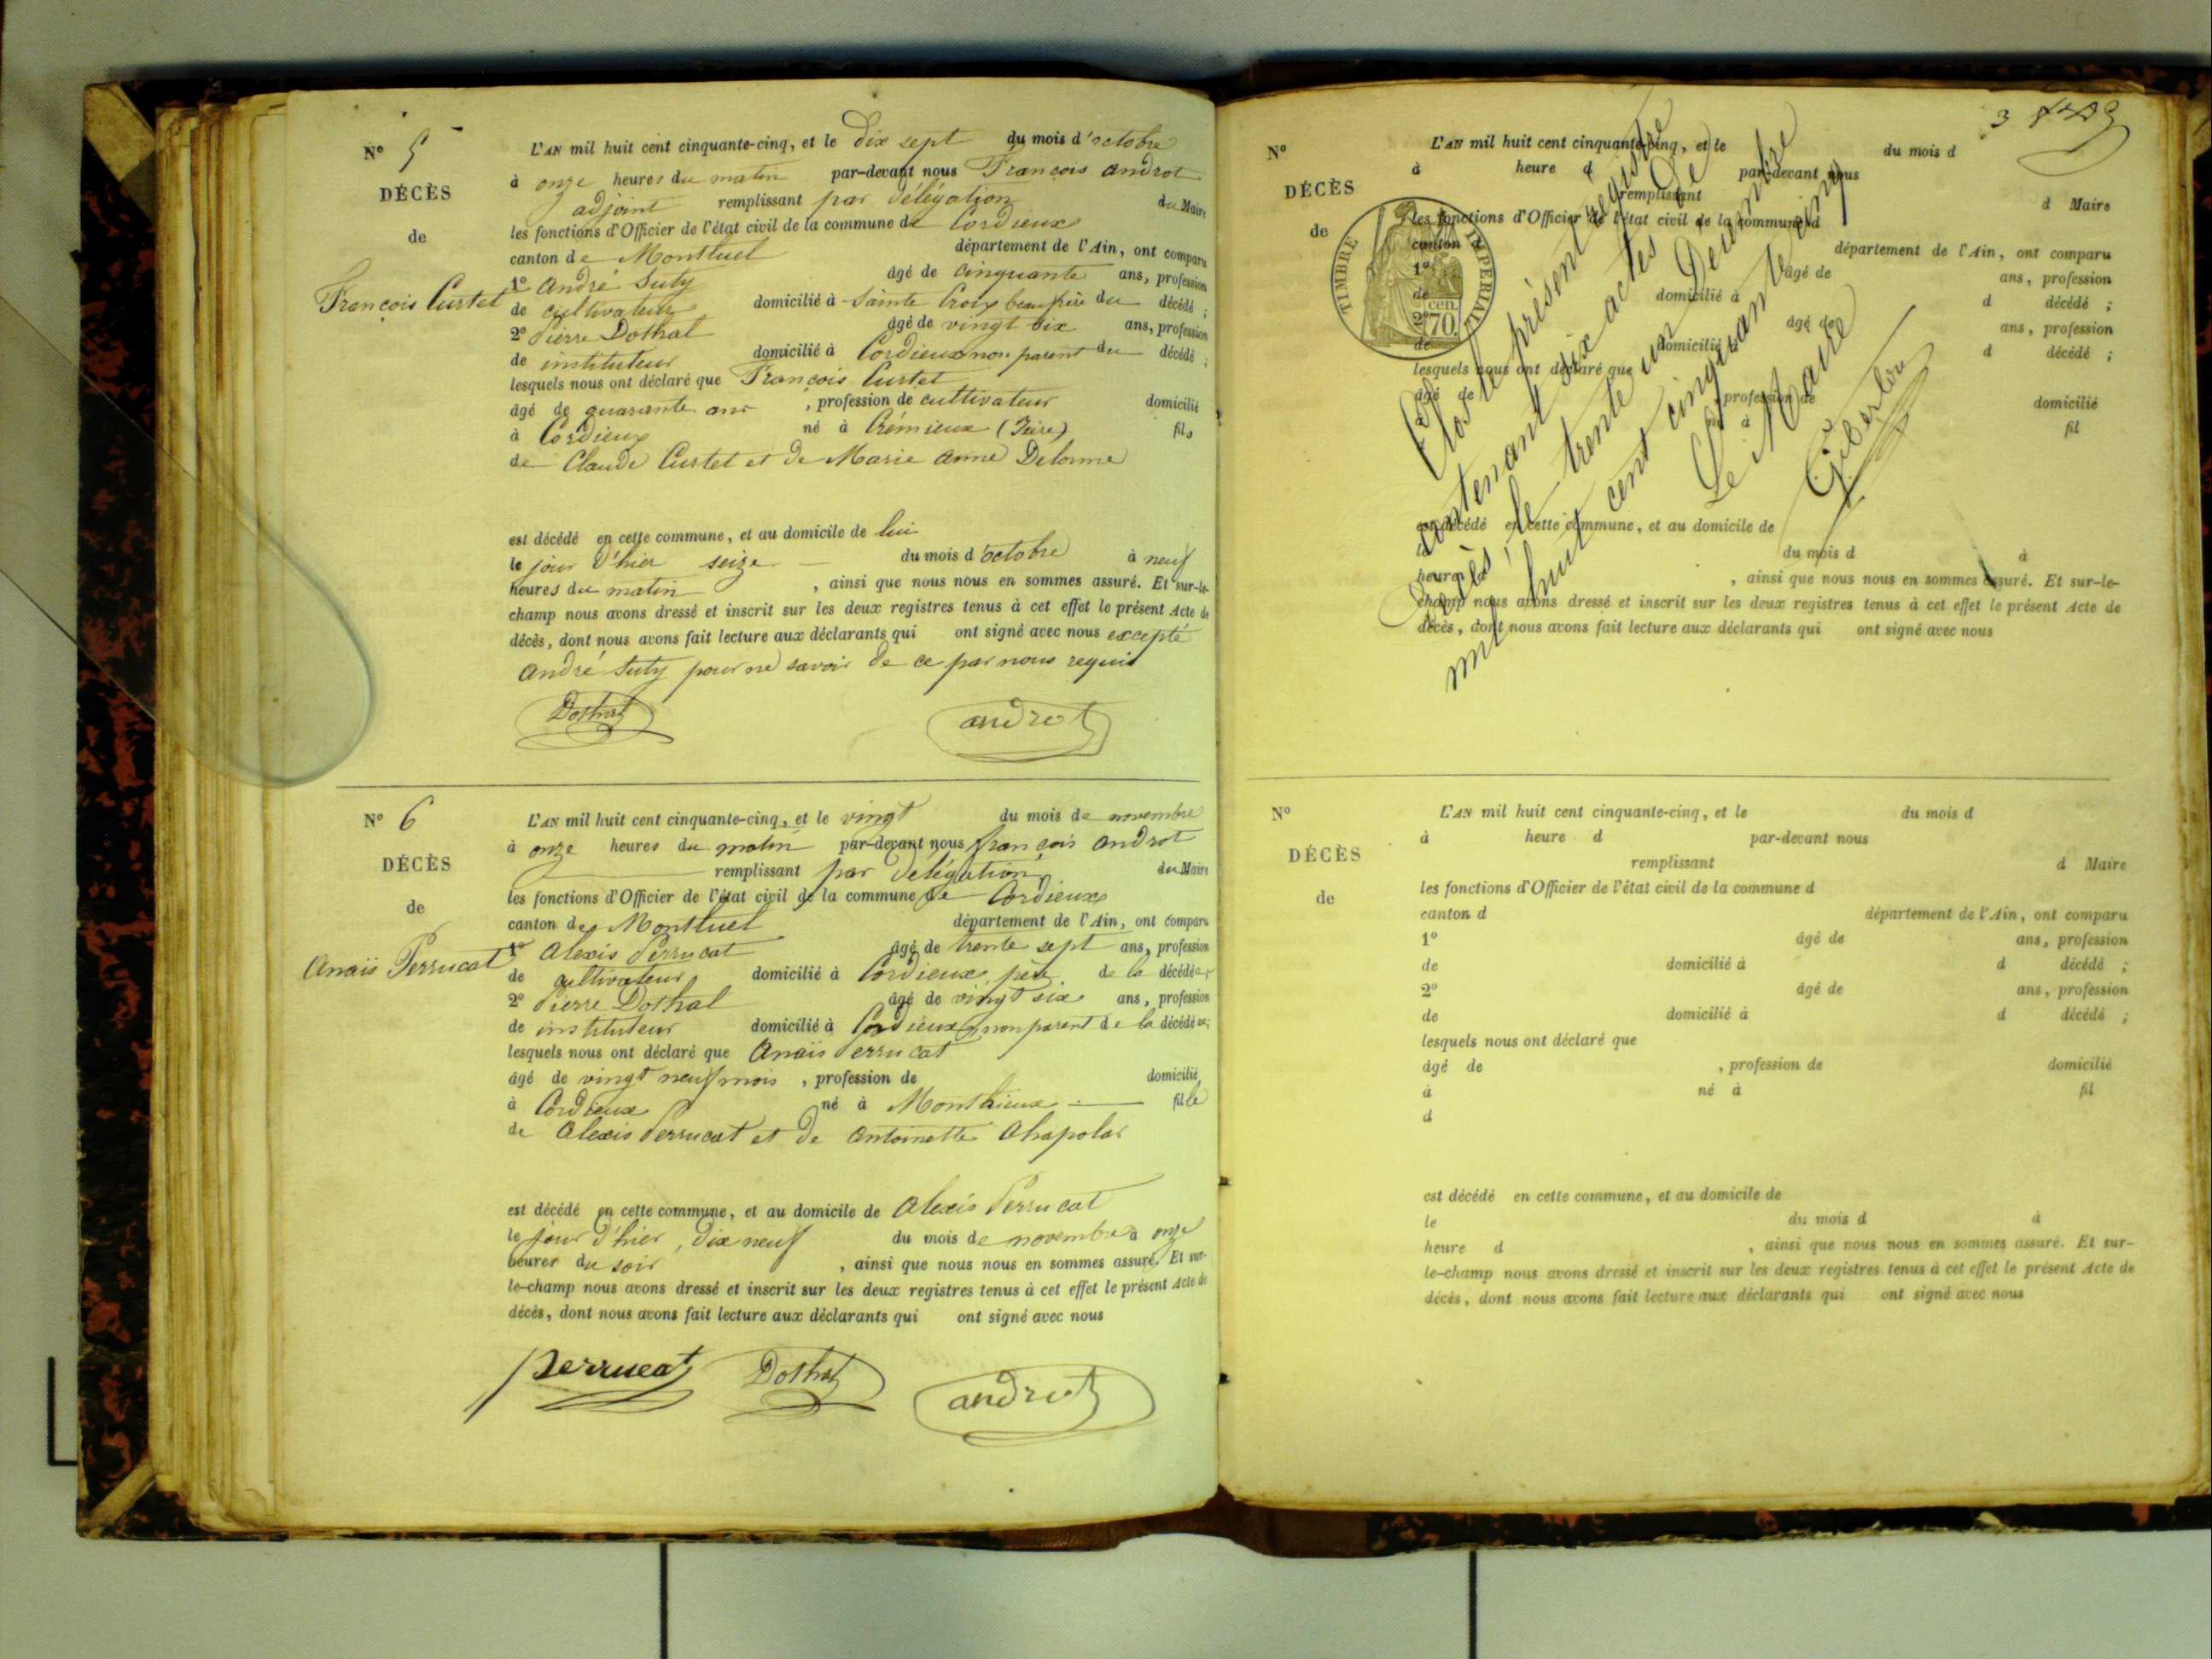 N° 5
DÉCÈS
de
François Curtet
L'AN mil huit cent cinquante-cinq, et le dix sept du mois d'octobre
à onze heures du matin par-devant nous François Androt
adjoint remplissant par délégation du Maire
les fonctions d'Officier de l'état civil de la commune de Cordieux
canton de Montluel département de l'Ain, ont comparu
1° André Suty âgé de cinquante ans, profession
de cultivateur domicilié à Sainte Croix beaupère du décédé ;
2° Pierre Dothal âgé de vingt six ans, profession
de instituteur domicilié à Cordieux non parent du décédé ;
lesquels nous ont déclaré que François Curtet
âgé de quarante ans , profession de cultivateur domicilié
à Cordieux né à Crémieux (Isère) fils
de Claude Curtet et de Marie Anne Delorme
est décédé en cette commune, et au domicile de lui
le jour d'hier seize du mois d'octobre à neuf
heures du matin , ainsi que nous nous en sommes assuré. Et sur-le-
champ nous avons dressé et inscrit sur les deux registres tenus à cet effet le présent Acte de
décès, dont nous avons fait lecture aux déclarants qui ont signé avec nous excepté
André Suty pour ne savoir de ce par nous requis
Dothal androt
N° 6
DÉCÈS
de
Anaïs Perrucat
L'AN mil huit cent cinquante-cinq, et le vingt du mois de novembre
à onze heures du matin par-devant nous françois Androt
remplissant par délégation du Maire
les fonctions d'Officier de l'état civil de la commune de Cordieux
canton de Montluel département de l'Ain, ont comparu
1° Alexis Perrucat âgé de trente sept ans, profession
de cultivateur domicilié à Cordieux père de la décédée ;
2° Pierre Dothal âgé de vingt six ans, profession
de instituteur domicilié à Cordieux non parent de la décédée ;
lesquels nous ont déclaré que Anaïs Perrucat
âgé de vingt neuf mois , profession de domicilié
à Cordieux né à Monthieux fille
de Alexis Perrucat et de Antoinette Chapolar
est décédé en cette commune, et au domicile de Alexis Perrucat
le jour d'hier, dix neuf du mois de novembre à onze
heures du soir , ainsi que nous nous en sommes assuré. Et sur-
le-champ nous avons dressé et inscrit sur les deux registres tenus à cet effet le présent Acte de
décès, dont nous avons fait lecture aux déclarants qui ont signé avec nous
perrucat Dothal androt
3
N°
DÉCÈS
de
L'AN mil huit cent cinquante-cinq, et le du mois d
à heure d par-devant nous
remplissant d Maire
les fonctions d'Officier de l'état civil de la commune d
canton département de l'Ain, ont comparu
1° âgé de ans, profession
de domicilié à d décédé ;
2° âgé de ans, profession
de domicilié à d décédé ;
lesquels nous ont déclaré que
âgé de profession de domicilié
né à fil
est décédé en cette commune, et au domicile de
le du mois d à
heure d , ainsi que nous nous en sommes assuré. Et sur-le-
champ nous avons dressé et inscrit sur les deux registres tenus à cet effet le présent Acte de
décès, dont nous avons fait lecture aux déclarants qui ont signé avec nous
TIMBRE IMPERIAL
70 cen.
Clos le présent registre
contenant six actes de
décès le trente un Décembre
mil huit cent cinquante cinq
Le Maire
Giberton
N°
DÉCÈS
de
L'AN mil huit cent cinquante-cinq, et le du mois d
à heure d par-devant nous
remplissant d Maire
les fonctions d'Officier de l'état civil de la commune d
canton d département de l'Ain, ont comparu
1° âgé de ans, profession
de domicilié à d décédé ;
2° âgé de ans, profession
de domicilié à d décédé ;
lesquels nous ont déclaré que
âgé de , profession de domicilié
à né à fil
d
est décédé en cette commune, et au domicile de
le du mois d à
heure d , ainsi que nous nous en sommes assuré. Et sur-
le-champ nous avons dressé et inscrit sur les deux registres tenus à cet effet le présent Acte de
décès, dont nous avons fait lecture aux déclarants qui ont signé avec nous